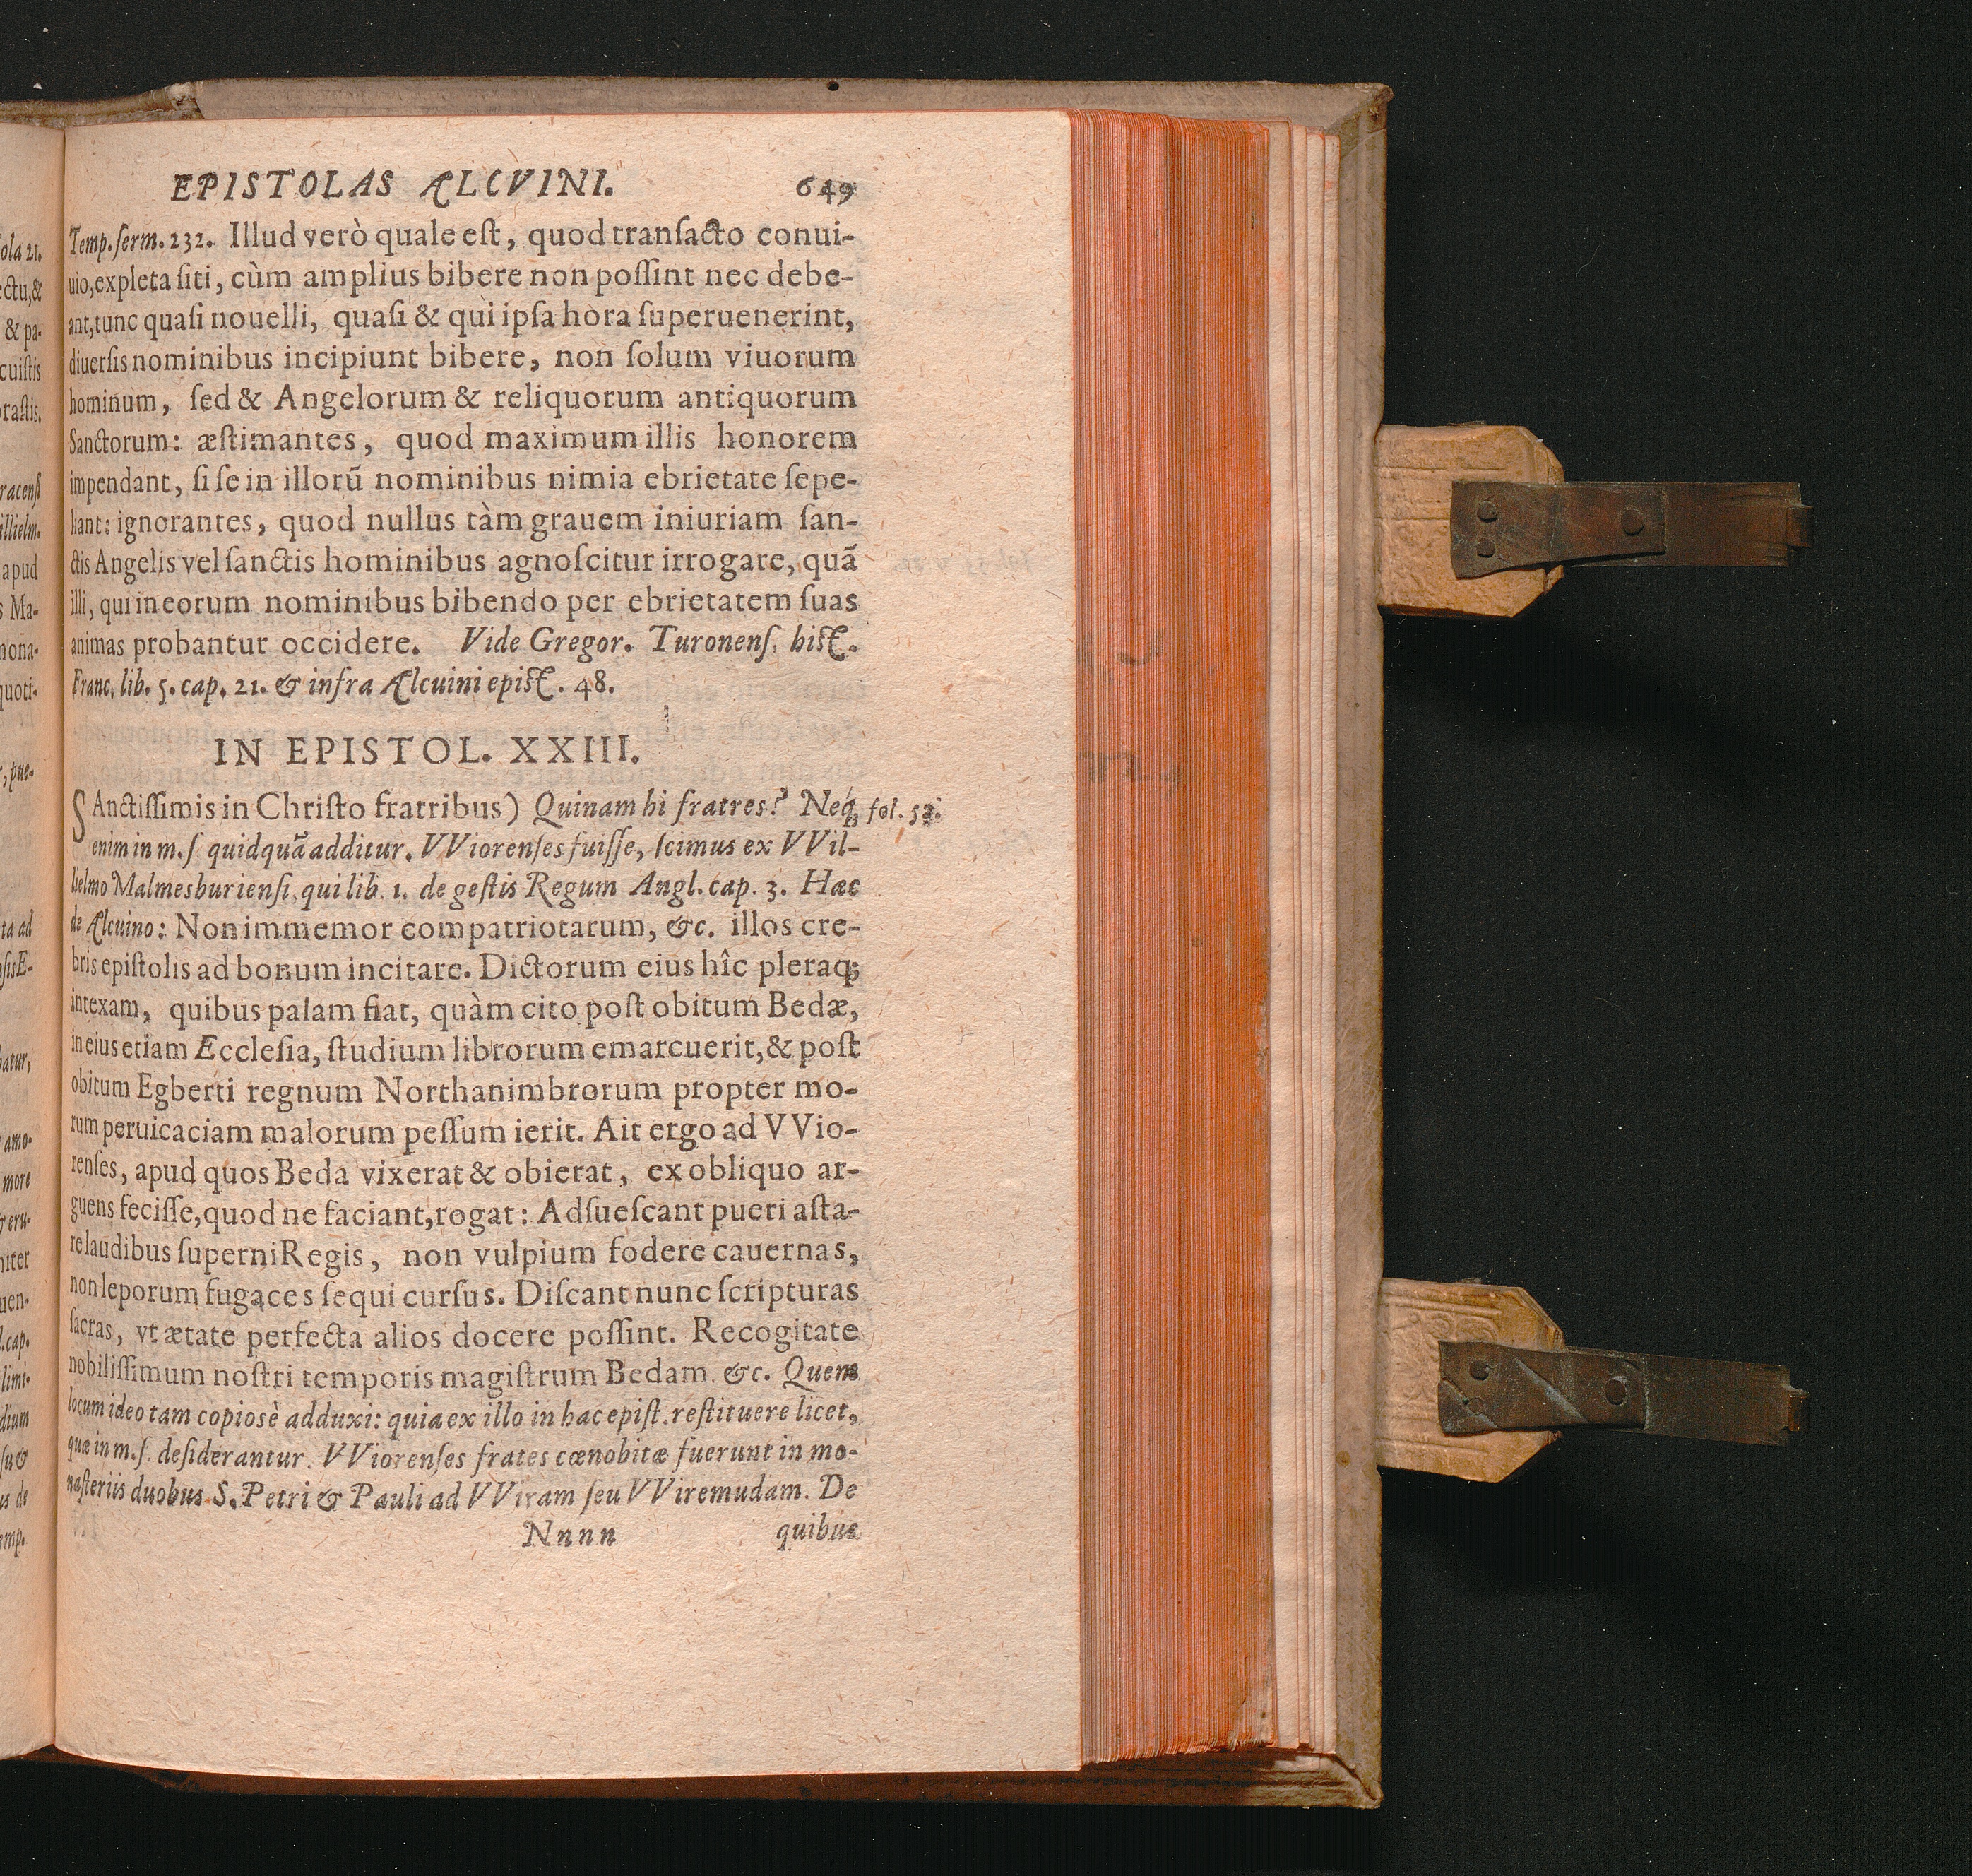 EPISTOLAS ALCVINI. 649
Temp. ſerm. 232. Illud verò quale eſt, quod tranſacto conui-
uio, expleta ſiti, cùm amplius bibere non poſſint nec debe-
ant, tunc quaſi nouelli, quaſi & qui ipſa hora ſuperuenerint,
diuerſis nominibus incipiunt bibere, non ſolum viuorum
hominum, ſed & Angelorum & reliquorum antiquorum
Sanctorum: æſtimantes, quod maximum illis honorem
impendant, ſi ſe in illorũ nominibus nimia ebrietate ſepe-
liant: ignorantes, quod nullus tàm grauem iniuriam ſan-
ctis Angelis vel ſanctis hominibus agnoſcitur irrogare, quã
illi, qui in eorum nominibus bibendo per ebrietatem ſuas
animas probantur occidere. Vide Gregor. Turonenſ. hiſt.
Franc. lib. 5. cap. 21. & infra Alcuini epiſt. 48.
IN EPISTOL. XXIII.
SAnctiſſimis in Chriſto fratribus) Quinam hi fratres? Neq; fol. 52.
enim in m. ſ. quidquã additur. VViorenſes fuiſſe, ſcimus ex VVil-
lielmo Malmesburienſi, qui lib. 1. de geſtis Regum Angl. cap. 3. Hæc
de Alcuino: Non immemor compatriotarum, &c. illos cre-
bris epiſtolis ad bonum incitare. Dictorum eius hîc pleraq;
intexam, quibus palam fiat, quàm cito poſt obitum Bedæ,
in eius etiam Eccleſia, ſtudium librorum emarcuerit, & poſt
obitum Egberti regnum Northanimbrorum propter mo-
rum peruicaciam malorum peſſum ierit. Ait ergo ad VVio-
renſes, apud quos Beda vixerat & obierat, ex obliquo ar-
guens feciſſe, quod ne faciant, rogat: Adſueſcant pueri aſta-
re laudibus ſuperni Regis, non vulpium fodere cauernas,
non leporum fugaces ſequi curſus. Diſcant nunc ſcripturas
ſacras, vt ætate perfecta alios docere poſſint. Recogitate
nobiliſſimum noſtri temporis magiſtrum Bedam. &c. Quem
locum ideo tam copiosè adduxi: quia ex illo in hac epiſt. reſtituere licet,
quæ in m. ſ. deſiderantur. VViorenſes frates cœnobitæ fuerunt in mo-
naſteriis duobus S. Petri & Pauli ad VViram ſeu VViremudam. De
Nnnn quibus